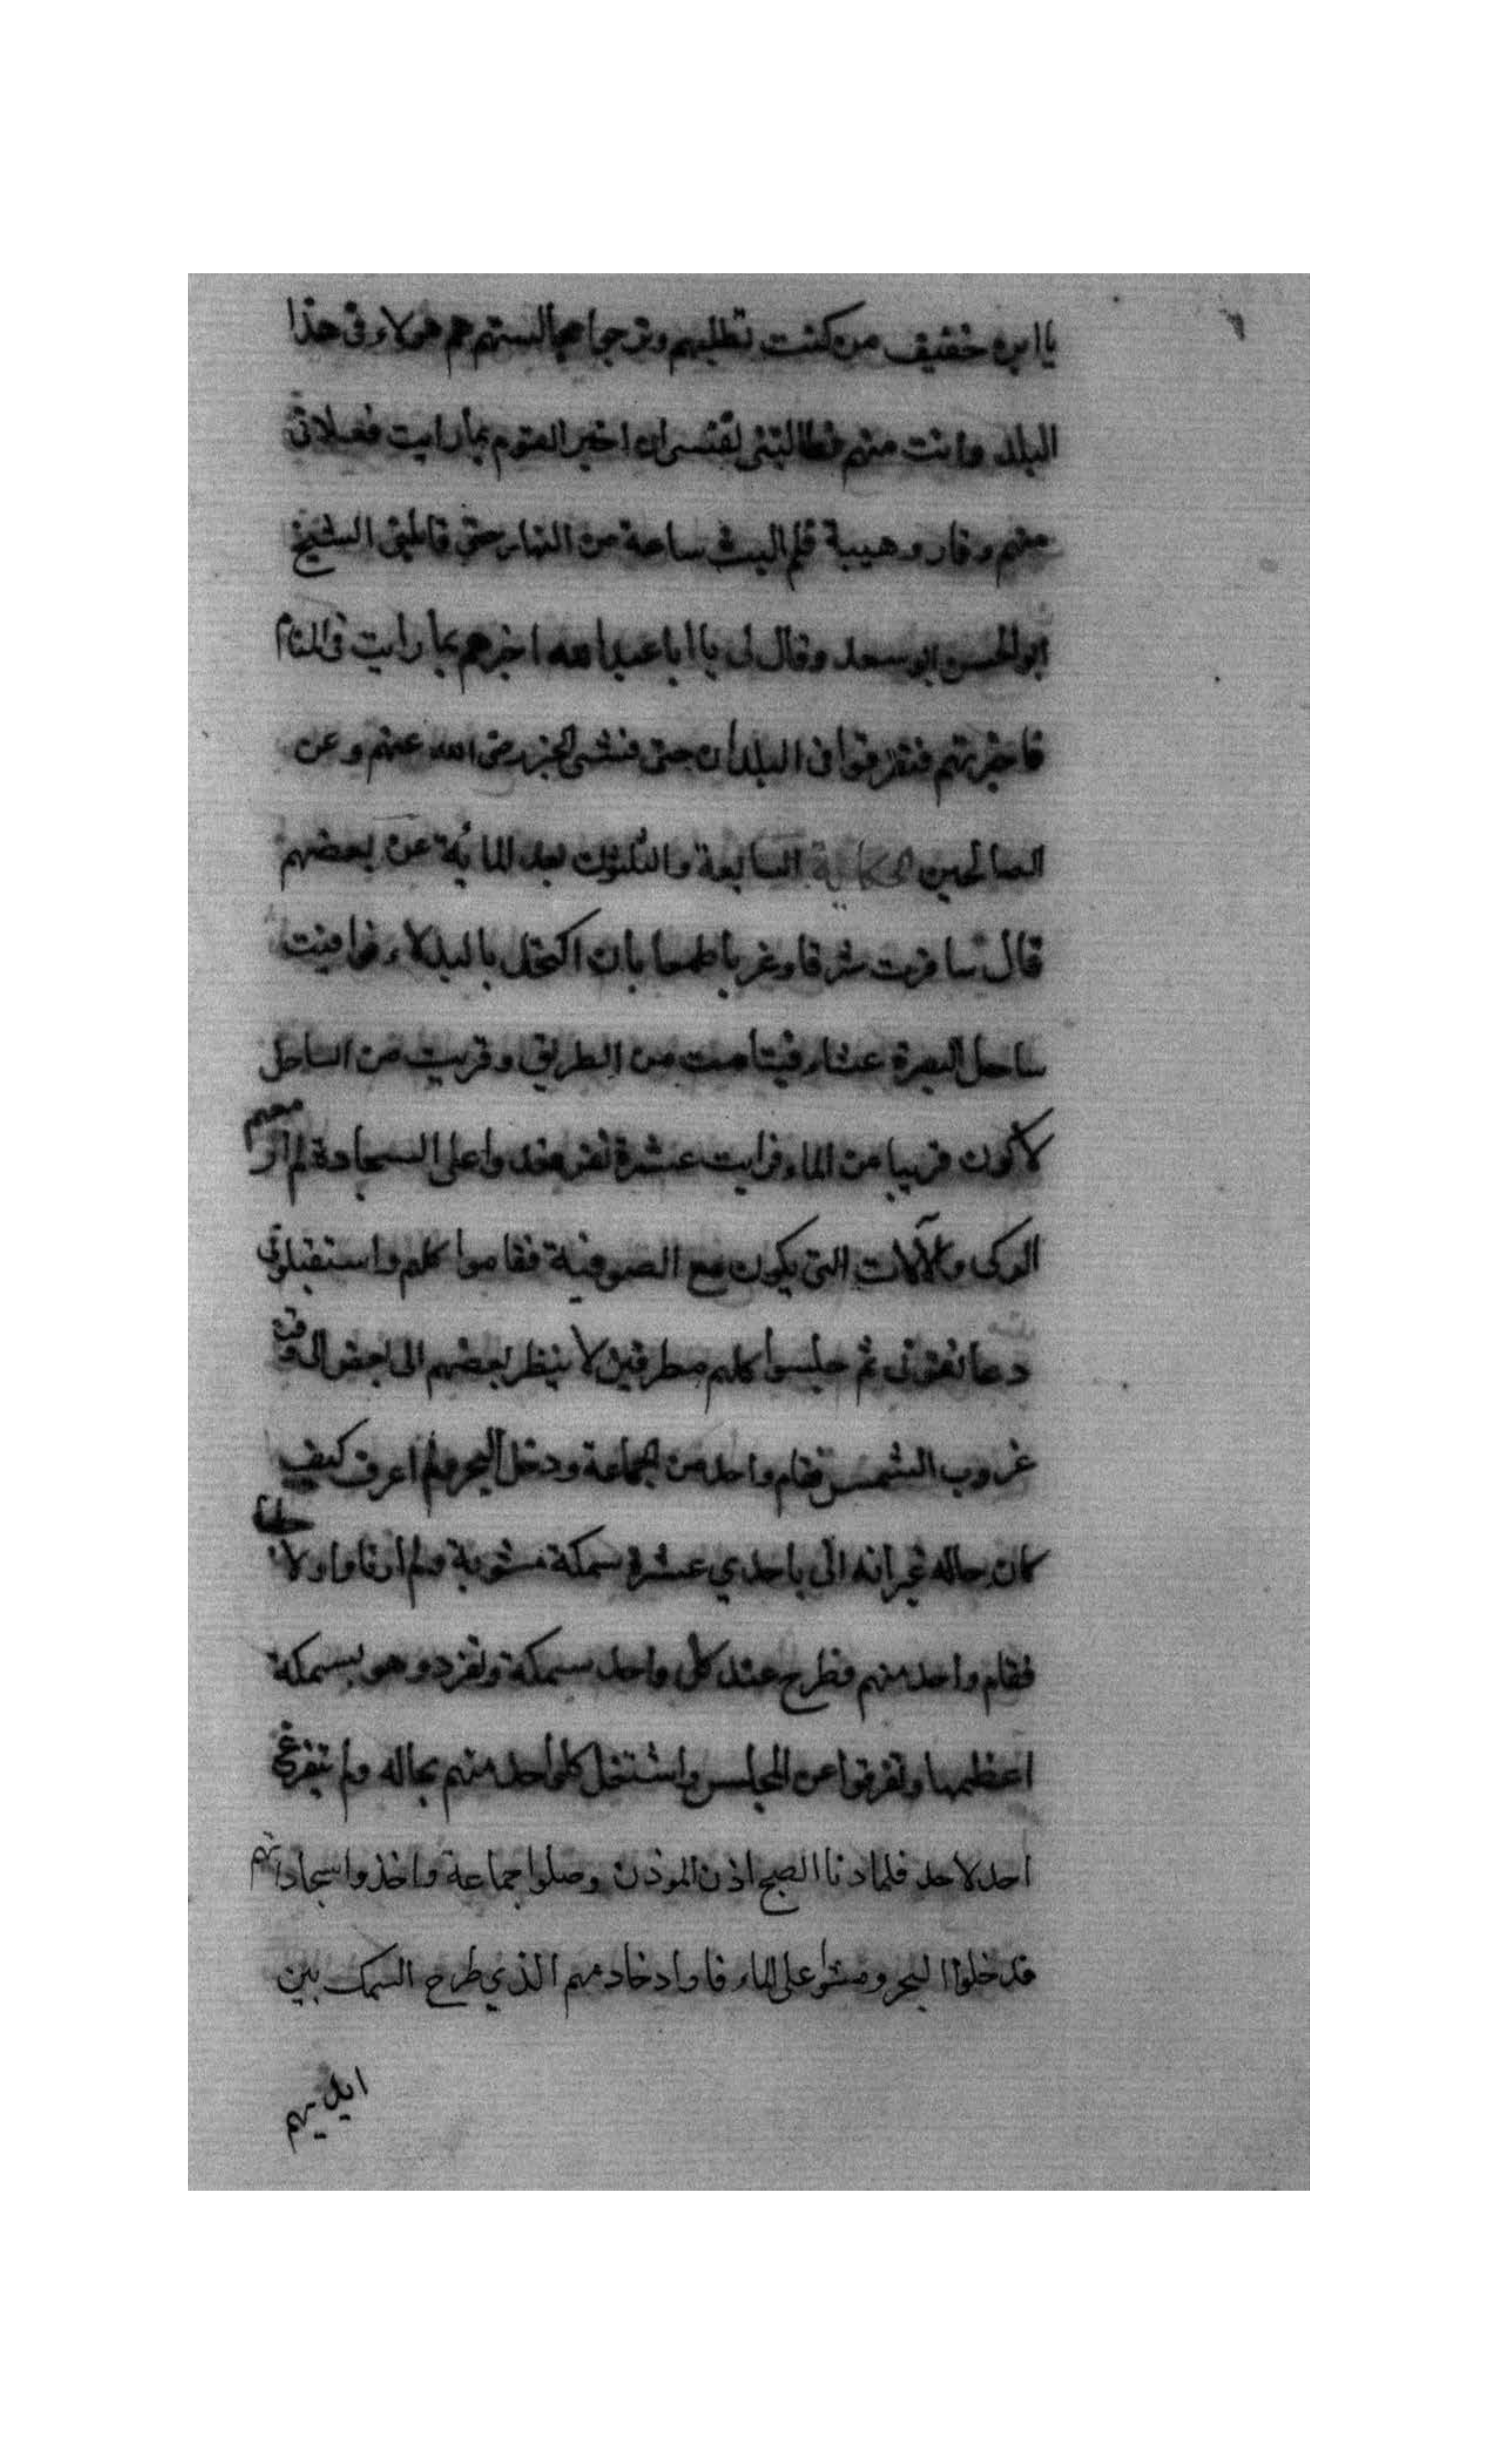 يا ابن خفيف من كنت تطلبهم وترجوا مجالستهم هم هولاء فى هذا
البلد وانت منهم فطالبتنى نفسى ان اخبر القوم بما رايت فعلانى
منهم وقار وهيبة فلم البث ساعة من النهار حتى قابلنى الشيخ
ابو الحسن ابو سعد وقال لى يا ابا عبد الله اخبرهم بما رايت فى المنام
فاخبرتهم فتفرقوا فى البلدان حتى فشى الخبر رضى الله عنهم وعن
الصالحين الحكاية السابعة والثلثون بعد المائة عن بعضهم
قال سافرت شرقا وغربا طمعا بان اكتحل بالبدلاء فوافيت
ساحل البصرة عشاء من الطريق وقربت من الساحل
لاكون قريبا من الماء فرايت عشرة نفر قعدوا على السجادة لم ار معهم
الركى والآلات التى يكون مع الصوفية فقاموا كلهم واستقبلونى
وعانقونى ثم جلسوا كلهم مطرقين لا ينظر بعضهم الى بعض الى وقت
غروب الشمس فقام واحد من الجماعة ودخل البحر ولم اعرف كيف
كان حاله غير انه اتى باحدي عشرة سمكة مشوية ولم ار نارا ولا حطبا
فقام واحد منهم وطرح عند كل واحد سمكة وتفرد وهو بسمكة
اعظمها وتفرقوا عن المجلس واشتغل كلواحد منهم بحاله ولم يتفرغ
احد لاحد فلما دنا الصبح اذن الموذن وصلوا جماعة واخذوا سجاداتهم
فدخلوا البحر ومشوا على الماء فاراد خادمهم الذي طرح السمك بين
ايديهم